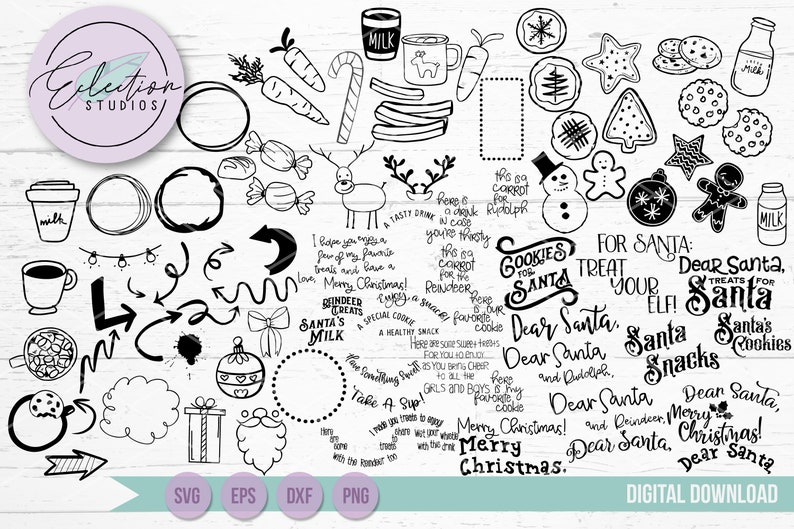 Eclection
STUDIOS
MILK
Milk
MILK
milk
A TASTY DRINK
here is
a drink
in case
you're thirsty
this is a
carrot
for
Rudolph
I hope you enjoy a
few of my favorite
treats and have a
Merry Christmas!
Love,
this is a
carrot
for the
Reindeer
Enjoy a snack!
REINDEER
TREATS
SANTA'S
MILK
A SPECIAL COOKIE
A HEALTHY SNACK
here
is our
favorite
cookie
Here are some sweet treats
For you to enjoy
as you bring cheer
to all the
Girls and Boys
here
is my
favorite
cookie
Have Something Sweet!
Take A Sip!
Here
are
some
treats
with the Reindeer too
I made you treats to enjoy
to
share
Wet your whistle
with this drink
COOKIES
FOR
SANTA
FOR SANTA:
TREAT
YOUR
ELF!
Dear Santa,
TREATS FOR
Santa
Dear Santa,
Santa
Snacks
Santa's
Cookies
Dear Santa
and Rudolph,
Dear Santa
and Reindeer,
Dear Santa,
Dear Santa,
Merry
Christmas!
Dear Santa,
Merry Christmas!
Merry
Christmas,
SVG
EPS
DXF
PNG
DIGITAL DOWNLOAD